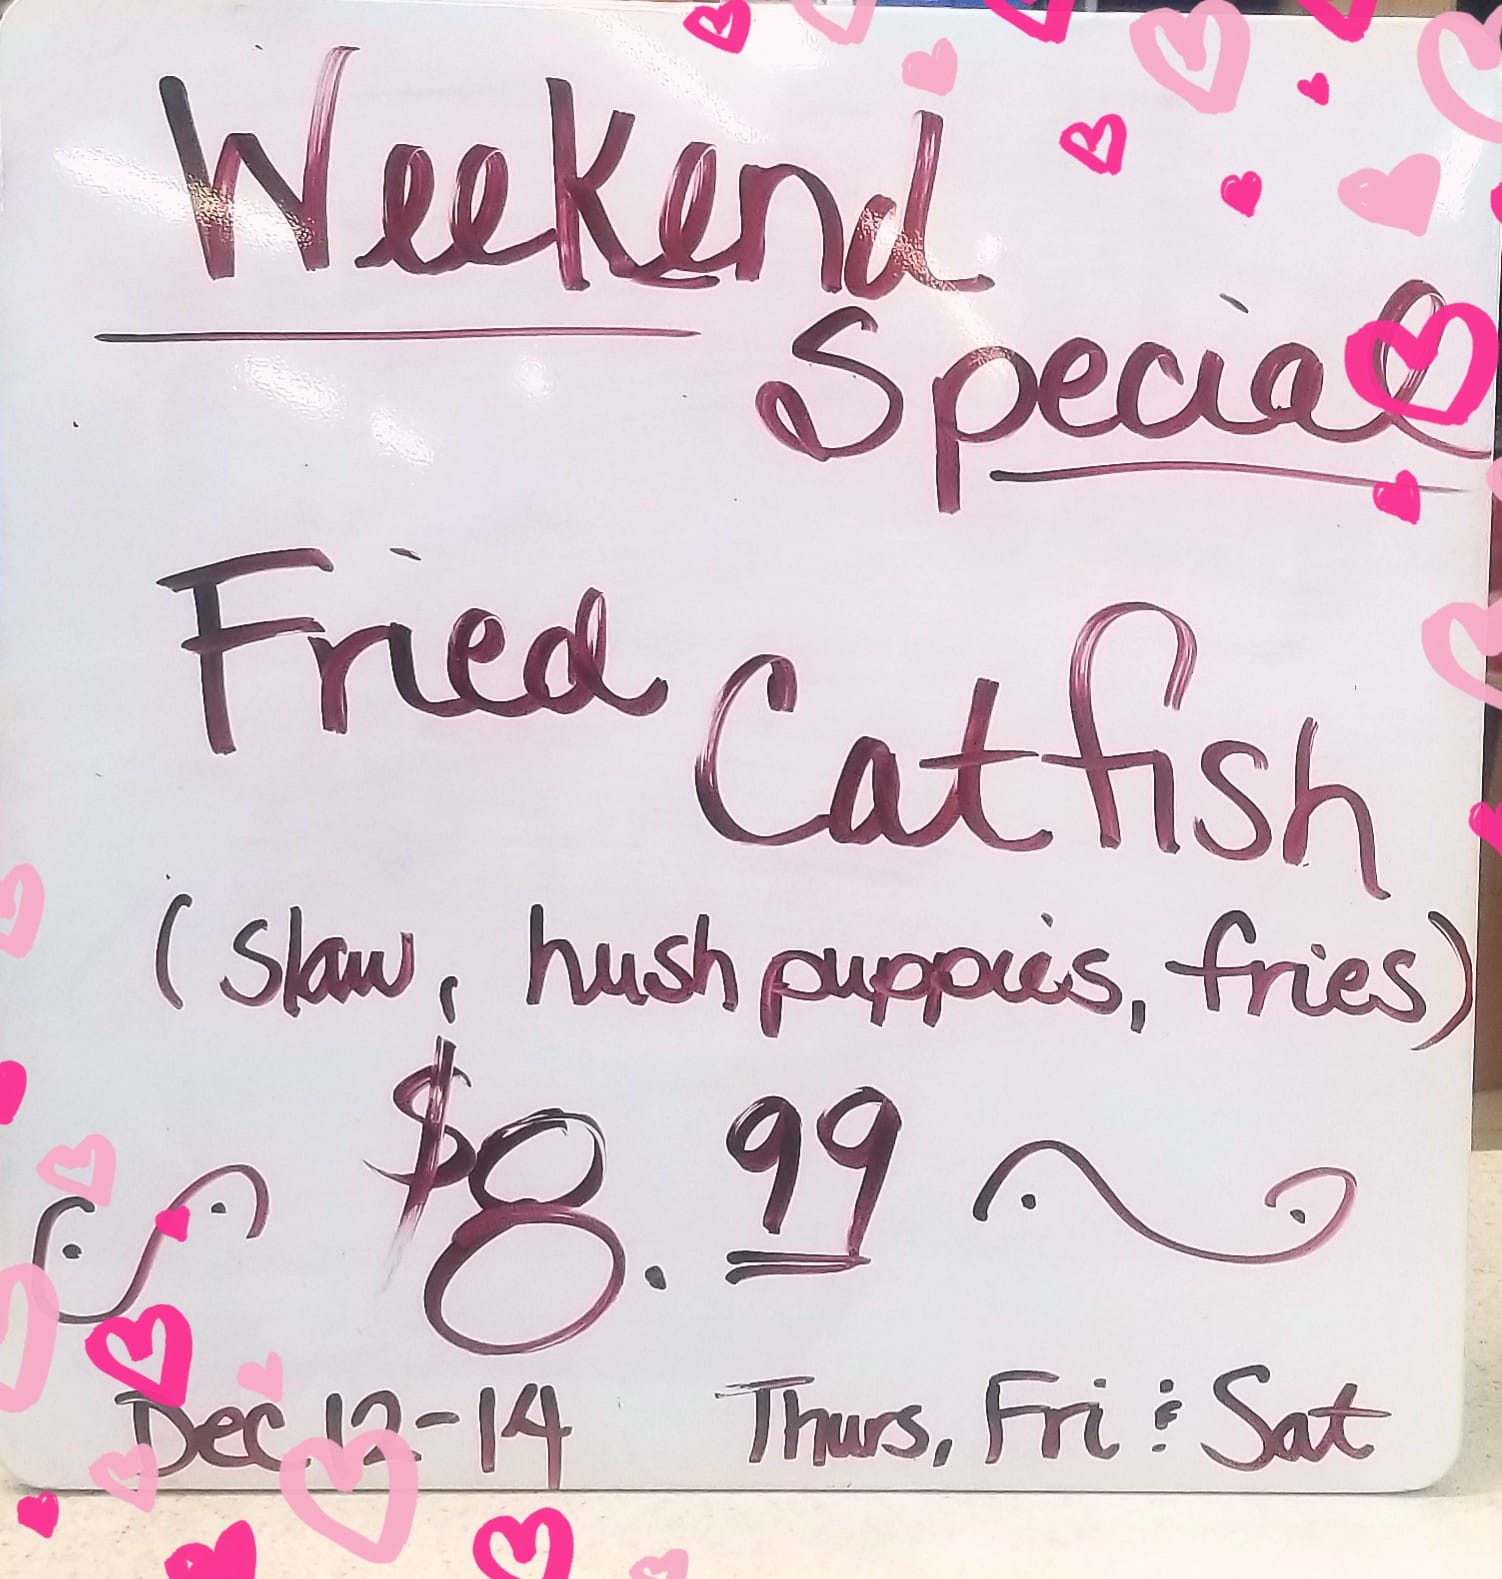 Weekend
Special
Fried
Catfish
(slaw, hush puppies, fries)
$8.99
Dec 12-14 Thurs, Fri & Sat